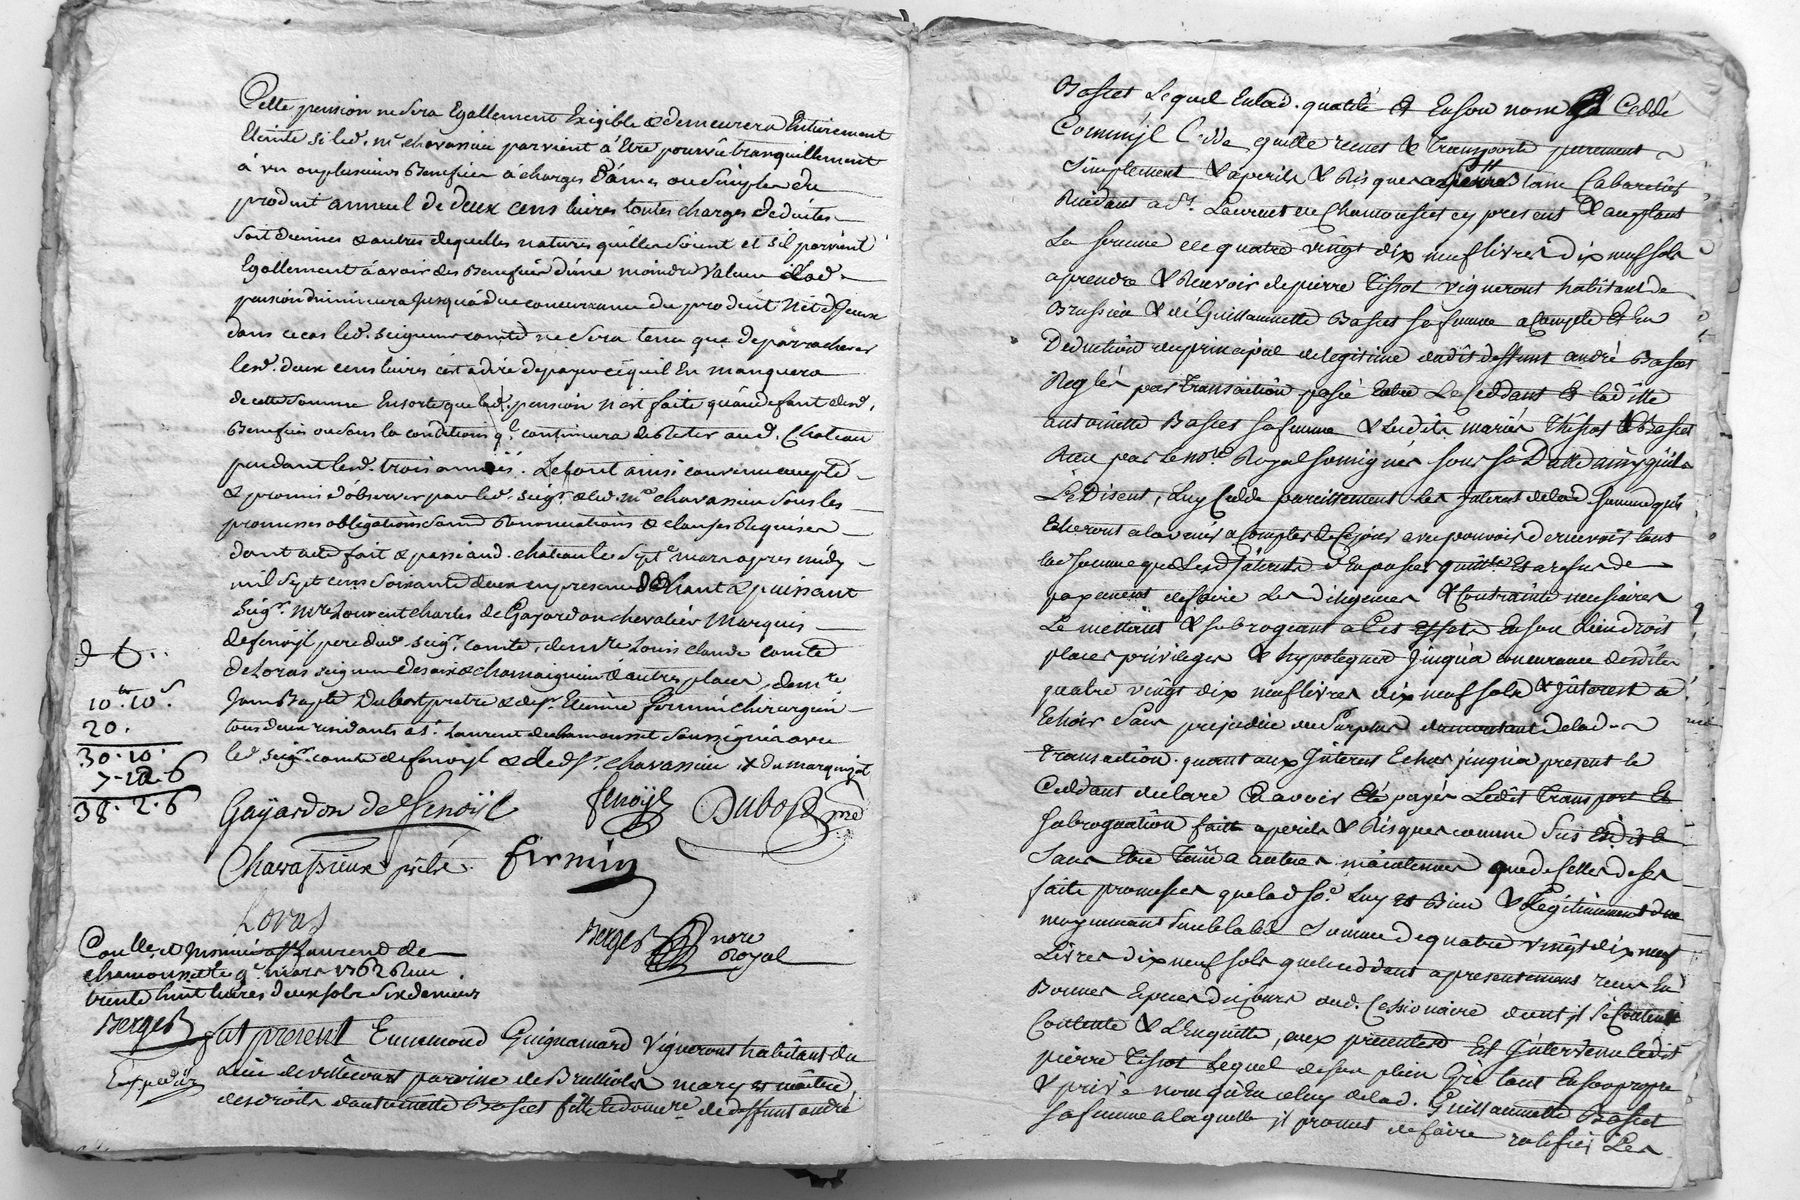 Cette pension ne sera Egallement Exigible & demeurera Entierement
Eteinte si led. mre chavassieu parvient a Etre pourvû tranquillement
à un ou plusieurs Benefices à charges d'ames ou simples du
produit annuel de deux cens livres toutes charges deduites
soit decimes & autres dequelles natures quilles soient et sil parvient
Egallement à avoir des Benefices d'une moindre valeur lad.
pension diminuera jusqua düe concurrance du produit Net d'Iceux
dans ce cas led. seigneur comte ne sera tenu que de parachever
lesd. deux cens livres c'est a dire de payer ce quil En manquera
de cette somme Ensorte que lad. pension n'est faite quà defaut desd.
Benefices ou sous la condition qt. continuera de Rester aud. Chateau
pendant lesd. trois années. Le tout ainsi convenu accepté
& promis d'observer par led. seigr. & led. mre chavassieu sous les
promesses obligations soumd Renonciations & clauses Requises
dont acte fait & passé aud. chateau le sept mars apres midy
mil sept cens soixante deux en presence de haut & puissant
seigr. mre Laurent charles de Gayardon chevalier marquis
defenoyl pere dud. seigr. comte, de mre Louis claude comte
de Loras seigneur de & autres places, de mre
Jean Bapte Dubost pretre & de sr. Etienne firmin chirurgien
tous deux residants a St. Laurent de chamousset soussignés avec
led. seigr. comte de fenoyl & led. sr. chavassieu & du marquis
10tt. 10s.
20.
30. 10.
7. 12. 6
38. 2. 6
Gayardon De ffenoÿl fenoÿl Dubost
Chavassieux ptre firmin
Loras
Berger nore
Royal
Conllé. et Insinué a St Laurent de
chamousset le 9e mars 1762 Reçu
trente huit livres deux sols six deniers
Berger
Expedié
fut present Ennemond Guignamard Vigneront habitant du
Lieu de villecourt paroisse de Brullioles mary et maitre
des droits dantoinette Basset fille de deffunt andré
Basset Lequel Enlad. qualité & En son nom a Ceddé
Comme jl Cedde quitte remet & transporte purement
simplement & a perils & Risques a pierre Cabaretier
Residant a St. Laurent de Chamousset cy present & acceptant
La somme de quatre vingt dix neuf livres dix neuf sols
a prendre & Recevoir de pierre Tissot vigneront habitant de
Brussieu & de Guillaumette Basset sa femme a Compte & En
Deduction du principal de legitime dudit deffunt andré Basset
Reglée par transaction passée Entre Le Ceddant & ladite
antoinette Basset sa femme & Lesdits mariés Thissot & Basset
Recue par Le nore Royal soussigné sous sa Datte ainsy quils
Le Disent, Luy Cedde pareillement les Interets de lad. somme quis
Echeront a lavenir a Compter de Ce jour avec pouvoir de recevoir tant
lad somme que Lesd Interets d'En passer quittce & a refus de
payement de faire Les diligences & Contrainte necessaires
Le mettant & subrogeant a Cet Effet En son Lieu droit
places privileges & hypoteques jusqu'a concurrance desdites
quatre vingt dix neuf livres dix neuf sols & Interest a
Echoir sans prejudice du surplus du montant delad.
transaction. quant aux Interets Echus jusqua present le
Ceddant declare En avoir Eté payés Ledit transport Et
subrogation faite a perils & Risques comme sus Est dit &
sans Etre Tenu a autres maintenues que de Celles de ses
faits promesses que lad se. Luy Est Bien & Legitimement due
moyennant semblable somme de quatre vingt dix neuf
Livres dix neuf sols que leceddant a presentement receu En
Bonnes Especes du jours dud. Cessionaire dont jl se Contente
Contente & L'Enquitte, aux presentes Est Intervenu ledit
pierre Tissot Lequel deson plein Gré tant En son propre
& privé nom quEn celuy delad. Guillaumette Basset
sa femme a laquelle jl promet de faire ratifier Les